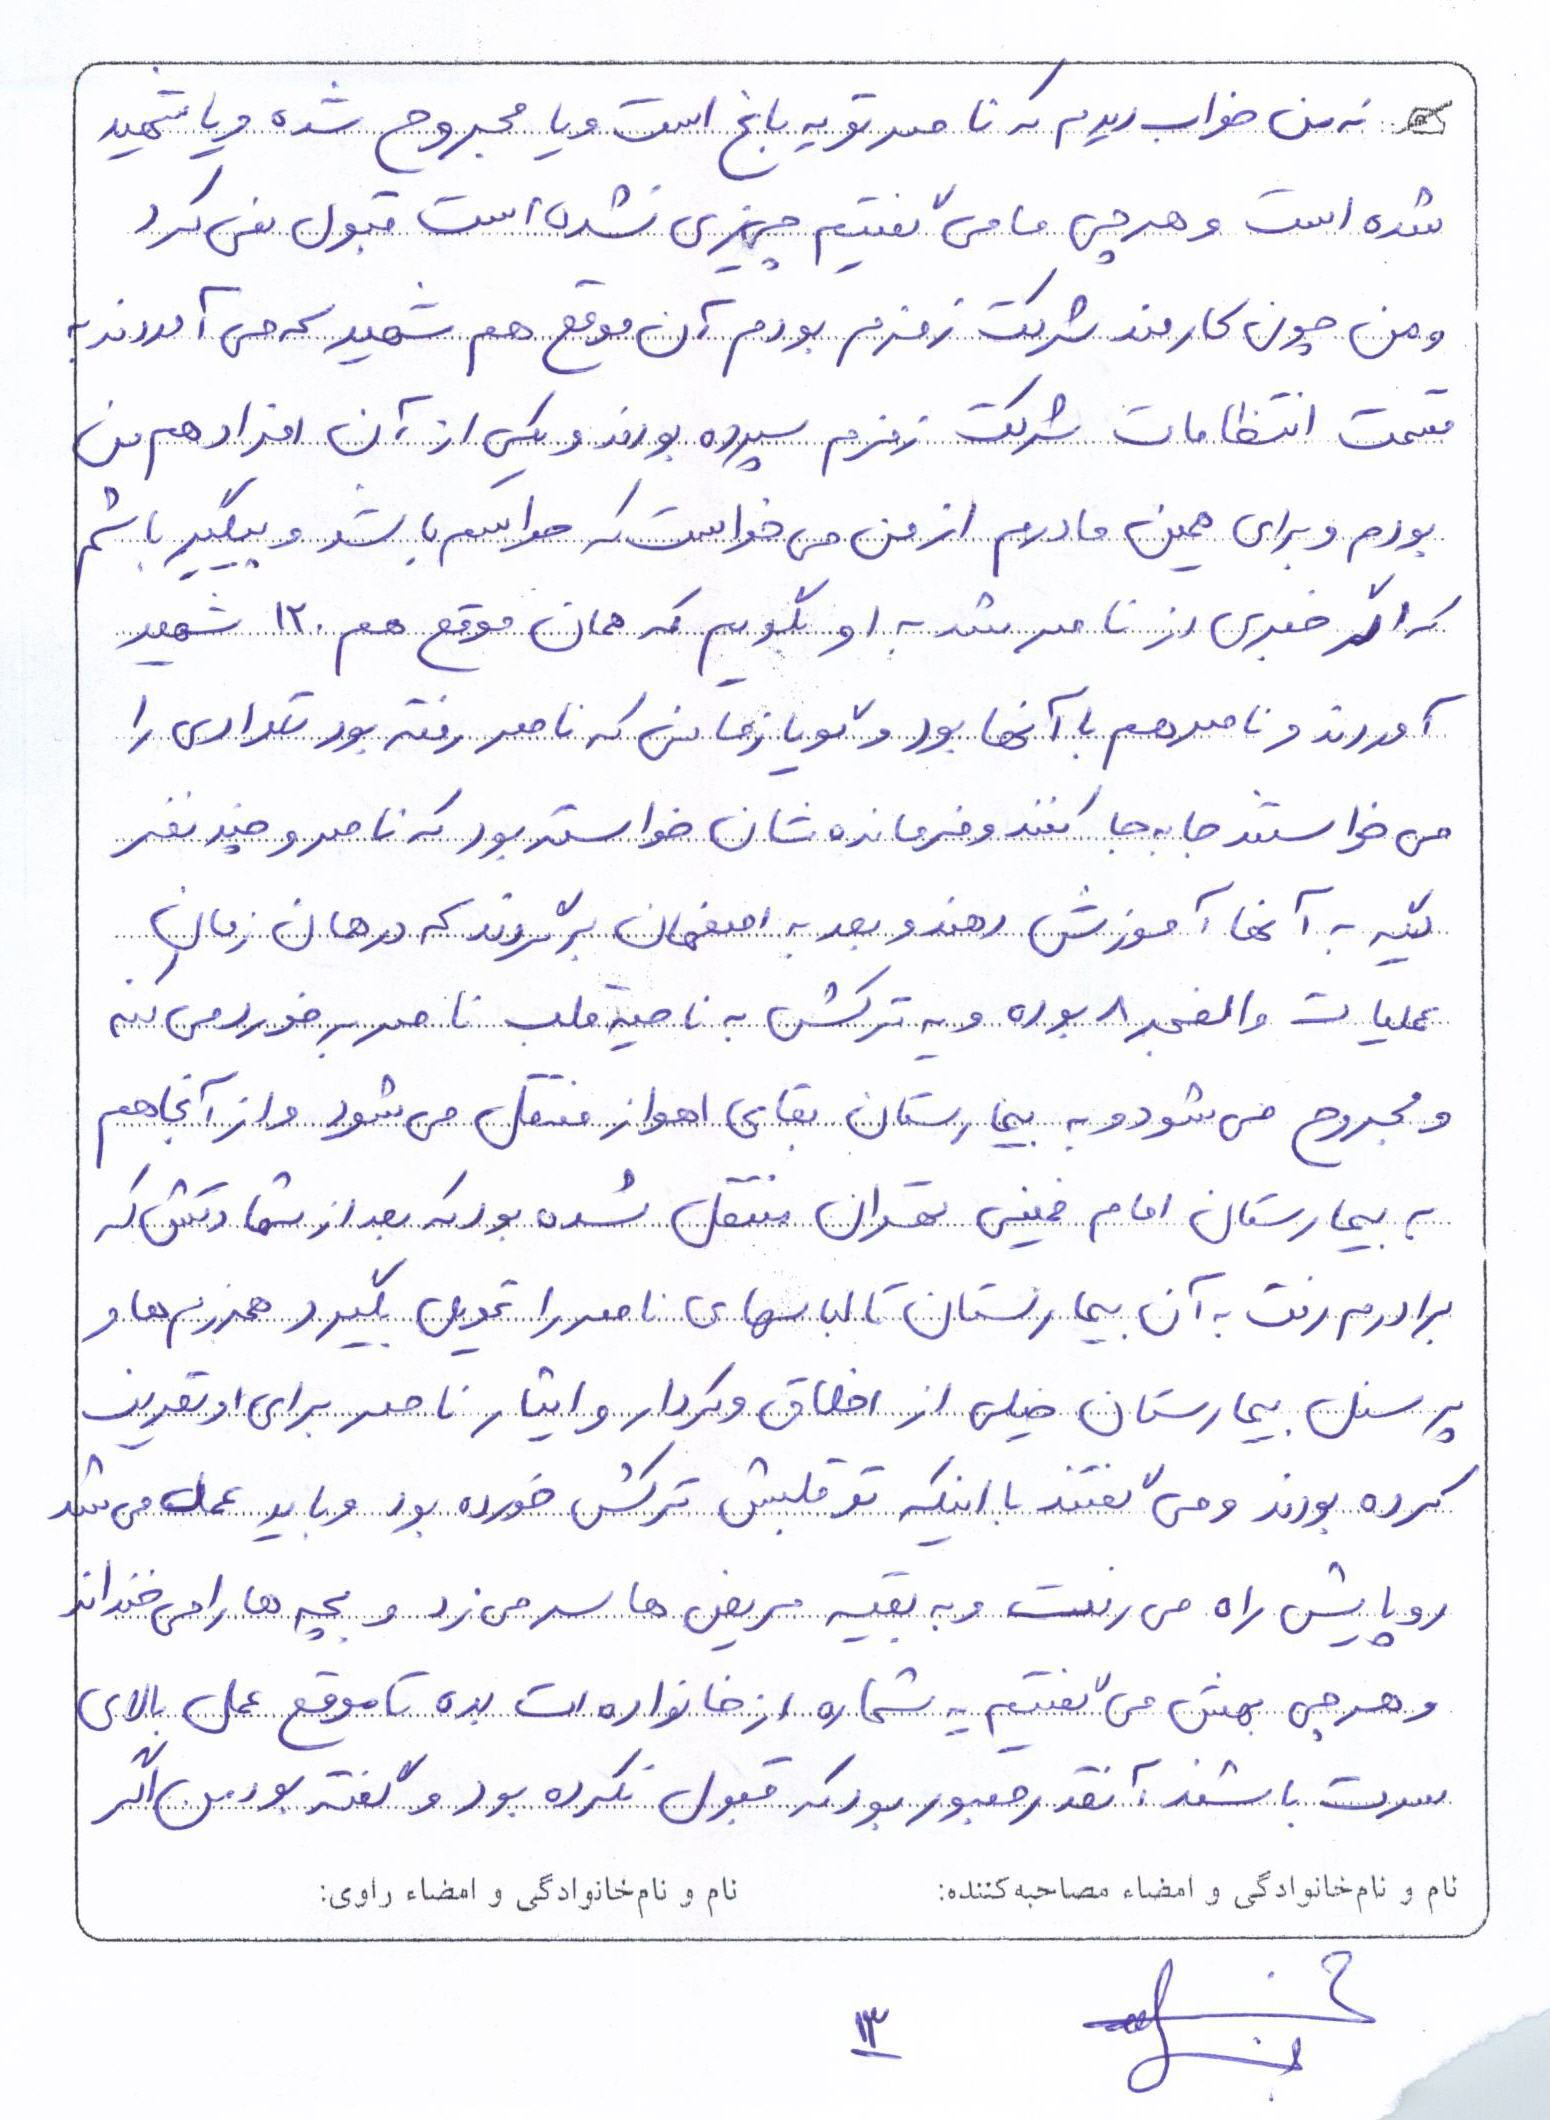 نه من خواب دیدم که ناصر تو یه باغ است و یا مجروح شده و یا شهید
شده است و هر چی ما می گفتیم چیزی نشده است قبول نمی کرد
و من چون کارمند شرکت زمزم بودم آن موقع هم شهید که می آوردند به
قسمت انتظامات شرکت زمزم سپرده بودند و یکی از آن افراد هم من
بودم و برای همین مادرم از من می خواست که حواسم باشد و پیگیر باشم
که اگر خبری از ناصر شد به او بگویم که همان موقع هم ۱۲۰ شهید
آوردند و ناصر هم با آنها بود و گویا زمانی که ناصر رفته بود تعدادی را
می خواستند جا به جا کنند و فرمانده شان خواسته بود که ناصر و چند نفر
دیگه به آنها آموزش دهند و بعد به اصفهان برگردند که در همان زمان
عملیات والفجر ۸ بوده و یه ترکش به ناحیه قلب ناصر برخورد می کنه
و مجروح می شود و به بیمارستان بقایی اهواز منتقل می شود و از آنجا هم
به بیمارستان امام خمینی تهران منتقل شده بود که بعد از شهادتش که
برادرم رفت به آن بیمارستان تا لباسهای ناصر را تحویل بگیرد همرزم ها و
پرسنل بیمارستان خیلی از اخلاق و کردار و ایثار ناصر برای او تعریف
کرده بودند و می گفتند با اینکه تو قلبش ترکش خورده بود و باید عمل می شد
رو پایش راه می رفت و به بقیه مریض ها سر می زد و بچه ها را می خنداند
و هر چی بهش می گفتیم یه شماره از خانواده ات بده تا موقع عمل بالای
سرت باشند آنقدر صبور بود که قبول نکرده بود و گفته بود من اگر
نام و نام خانوادگی و امضاء مصاحبه کننده: نام و نام خانوادگی و امضاء راوی:
۱۳